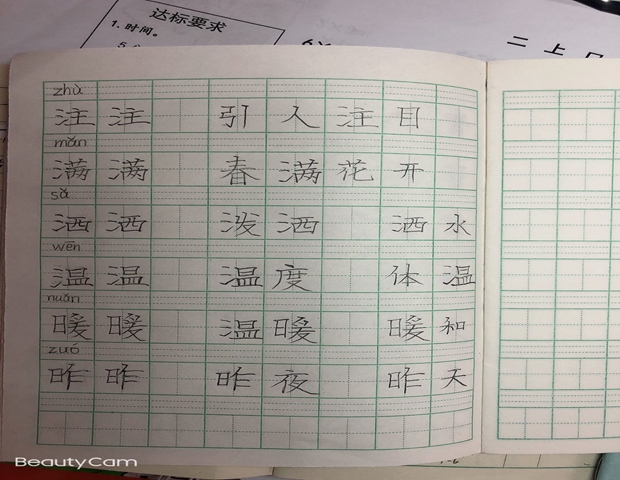 达标要求
1. 时间。
二 上
zhù
注 注 引 人 注 目
mǎn
满 满 春 满 花 开
sǎ
洒 洒 泼 洒 洒 水
wēn
温 温 温 度 体 温
nuǎn
暖 暖 温 暖 暖 和
zuó
昨 昨 昨 夜 昨 天
BeautyCam